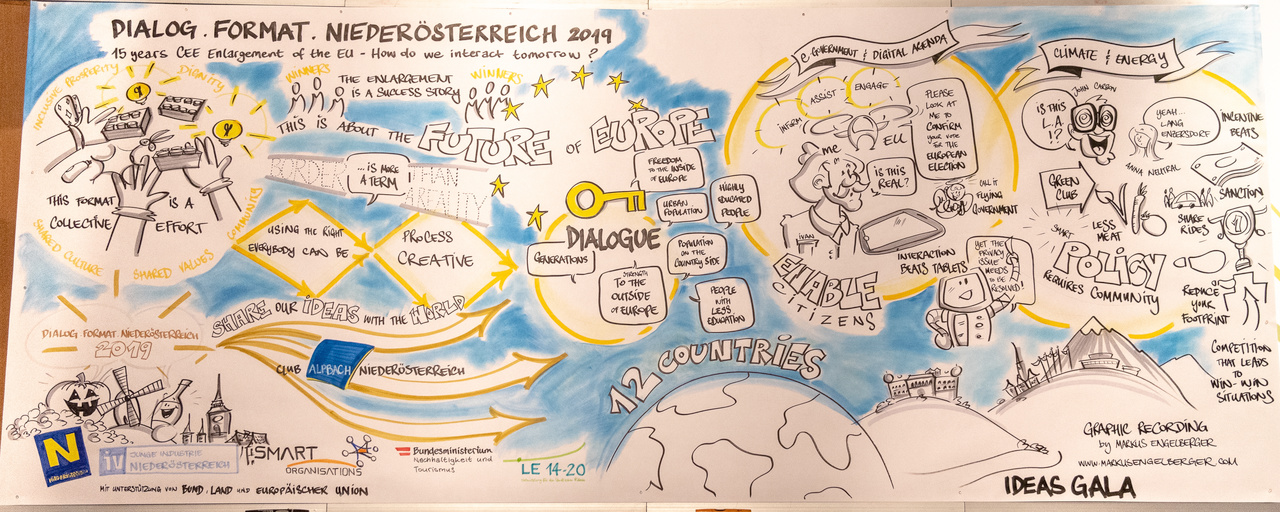 DIALOG.FORMAT.NIEDERÖSTERREICH 2019
15 years CEE Enlargement of the EU - How do we interact tomorrow?
INCLUSIVE PROSPERITY
DIGNITY
THIS FORMAT
IS A
COLLECTIVE
EFFORT
COMMUNITY
SHARED CULTURE
SHARED VALUES
WINNERS
THE ENLARGEMENT
IS A SUCCESS STORY
WINNERS
THIS IS ABOUT THE FUTURE OF EUROPE
BORDER
...IS MORE
A TERM
THAN
REALITY
USING THE RIGHT
EVERYBODY CAN BE
PROCESS
CREATIVE
SHARE OUR IDEAS WITH THE WORLD
CLUB ALPBACH NIEDERÖSTERREICH
DIALOG FORMAT NIEDERÖSTERREICH
2019
FREEDOM
TO THE INSIDE
OF EUROPE
URBAN
POPULATION
HIGHLY
EDUCATED
PEOPLE
DIALOGUE
GENERATIONS
STRENGTH
TO THE
OUTSIDE
OF EUROPE
POPULATION
ON THE
COUNTRY SIDE
PEOPLE
WITH
LESS
EDUCATION
12 COUNTRIES
e-GOVERNMENT & DIGITAL AGENDA
INFORM
ASSIST
ENGAGE
me
EU
IS THIS
REAL?
PLEASE
LOOK AT
ME TO
CONFIRM
your vote
FOR THE
EUROPEAN
ELECTION
CALL IT
FLYING
GOVERNMENT
IVAN
INTERACTION
BEATS TABLETS
ENABLE
CITIZENS
YET THE
PRIVACY
ISSUE
NEEDS
TO BE
RESOLVED!
CLIMATE & ENERGY
JOHN CARBON
IS THIS
L.A.
!?
YEAH...
LANG
ENZERSDORF
ANNA NEUTRAL
INCENTIVE
BEATS
SANCTION
GREEN
CLUB
LESS
MEAT
SHARE
RIDES
SMART
POLICY
REQUIRES COMMUNITY
REDUCE
YOUR
FOOTPRINT
COMPETITION
THAT LEADS
TO
WIN-WIN
SITUATIONS
N
NIEDERÖSTERREICH
iV JUNGE INDUSTRIE
NIEDERÖSTERREICH
SMART
ORGANISATIONS
Bundesministerium
Nachhaltigkeit und
Tourismus
LE 14-20
MIT UNTERSTÜTZUNG VON BUND, LAND UND EUROPÄISCHER UNION
GRAPHIC RECORDING
by MARKUS ENGELBERGER
WWW.MARKUSENGELBERGER.COM
IDEAS GALA